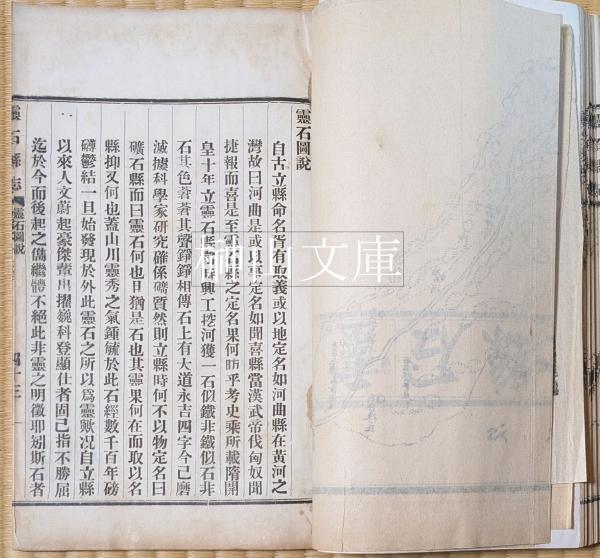 靈石圖說
自古立縣命名胥有取義或以地定名如河曲縣在黃河之
灣故曰河曲是或以事定名如聞喜縣當漢武帝伐匈奴聞
捷報而喜是至靈石縣之定名果何昉乎考史乘所載隋開
皇十年立靈石縣
興工挖河獲一石似鐵非鐵似石非
石其色蒼蒼其聲錚錚相傳石上有大道永吉四字今已磨
滅據科學家研究確係礦質然則立縣時何不以物定名曰
礦石縣而曰靈石何也曰猶是石也其靈果何在而取以名
縣抑又何也蓋山川靈秀之氣鍾毓於此石經數千百年磅
礴鬱結一旦始發現於外此靈石之所以爲靈歟况自立縣
以來人文蔚起豪傑輩出擢巍科登顯仕者固已指不勝屈
迄於今而後起之儁繼體不絕此非靈之明徵耶矧斯石者
靈石縣志
靈石圖說
四十三